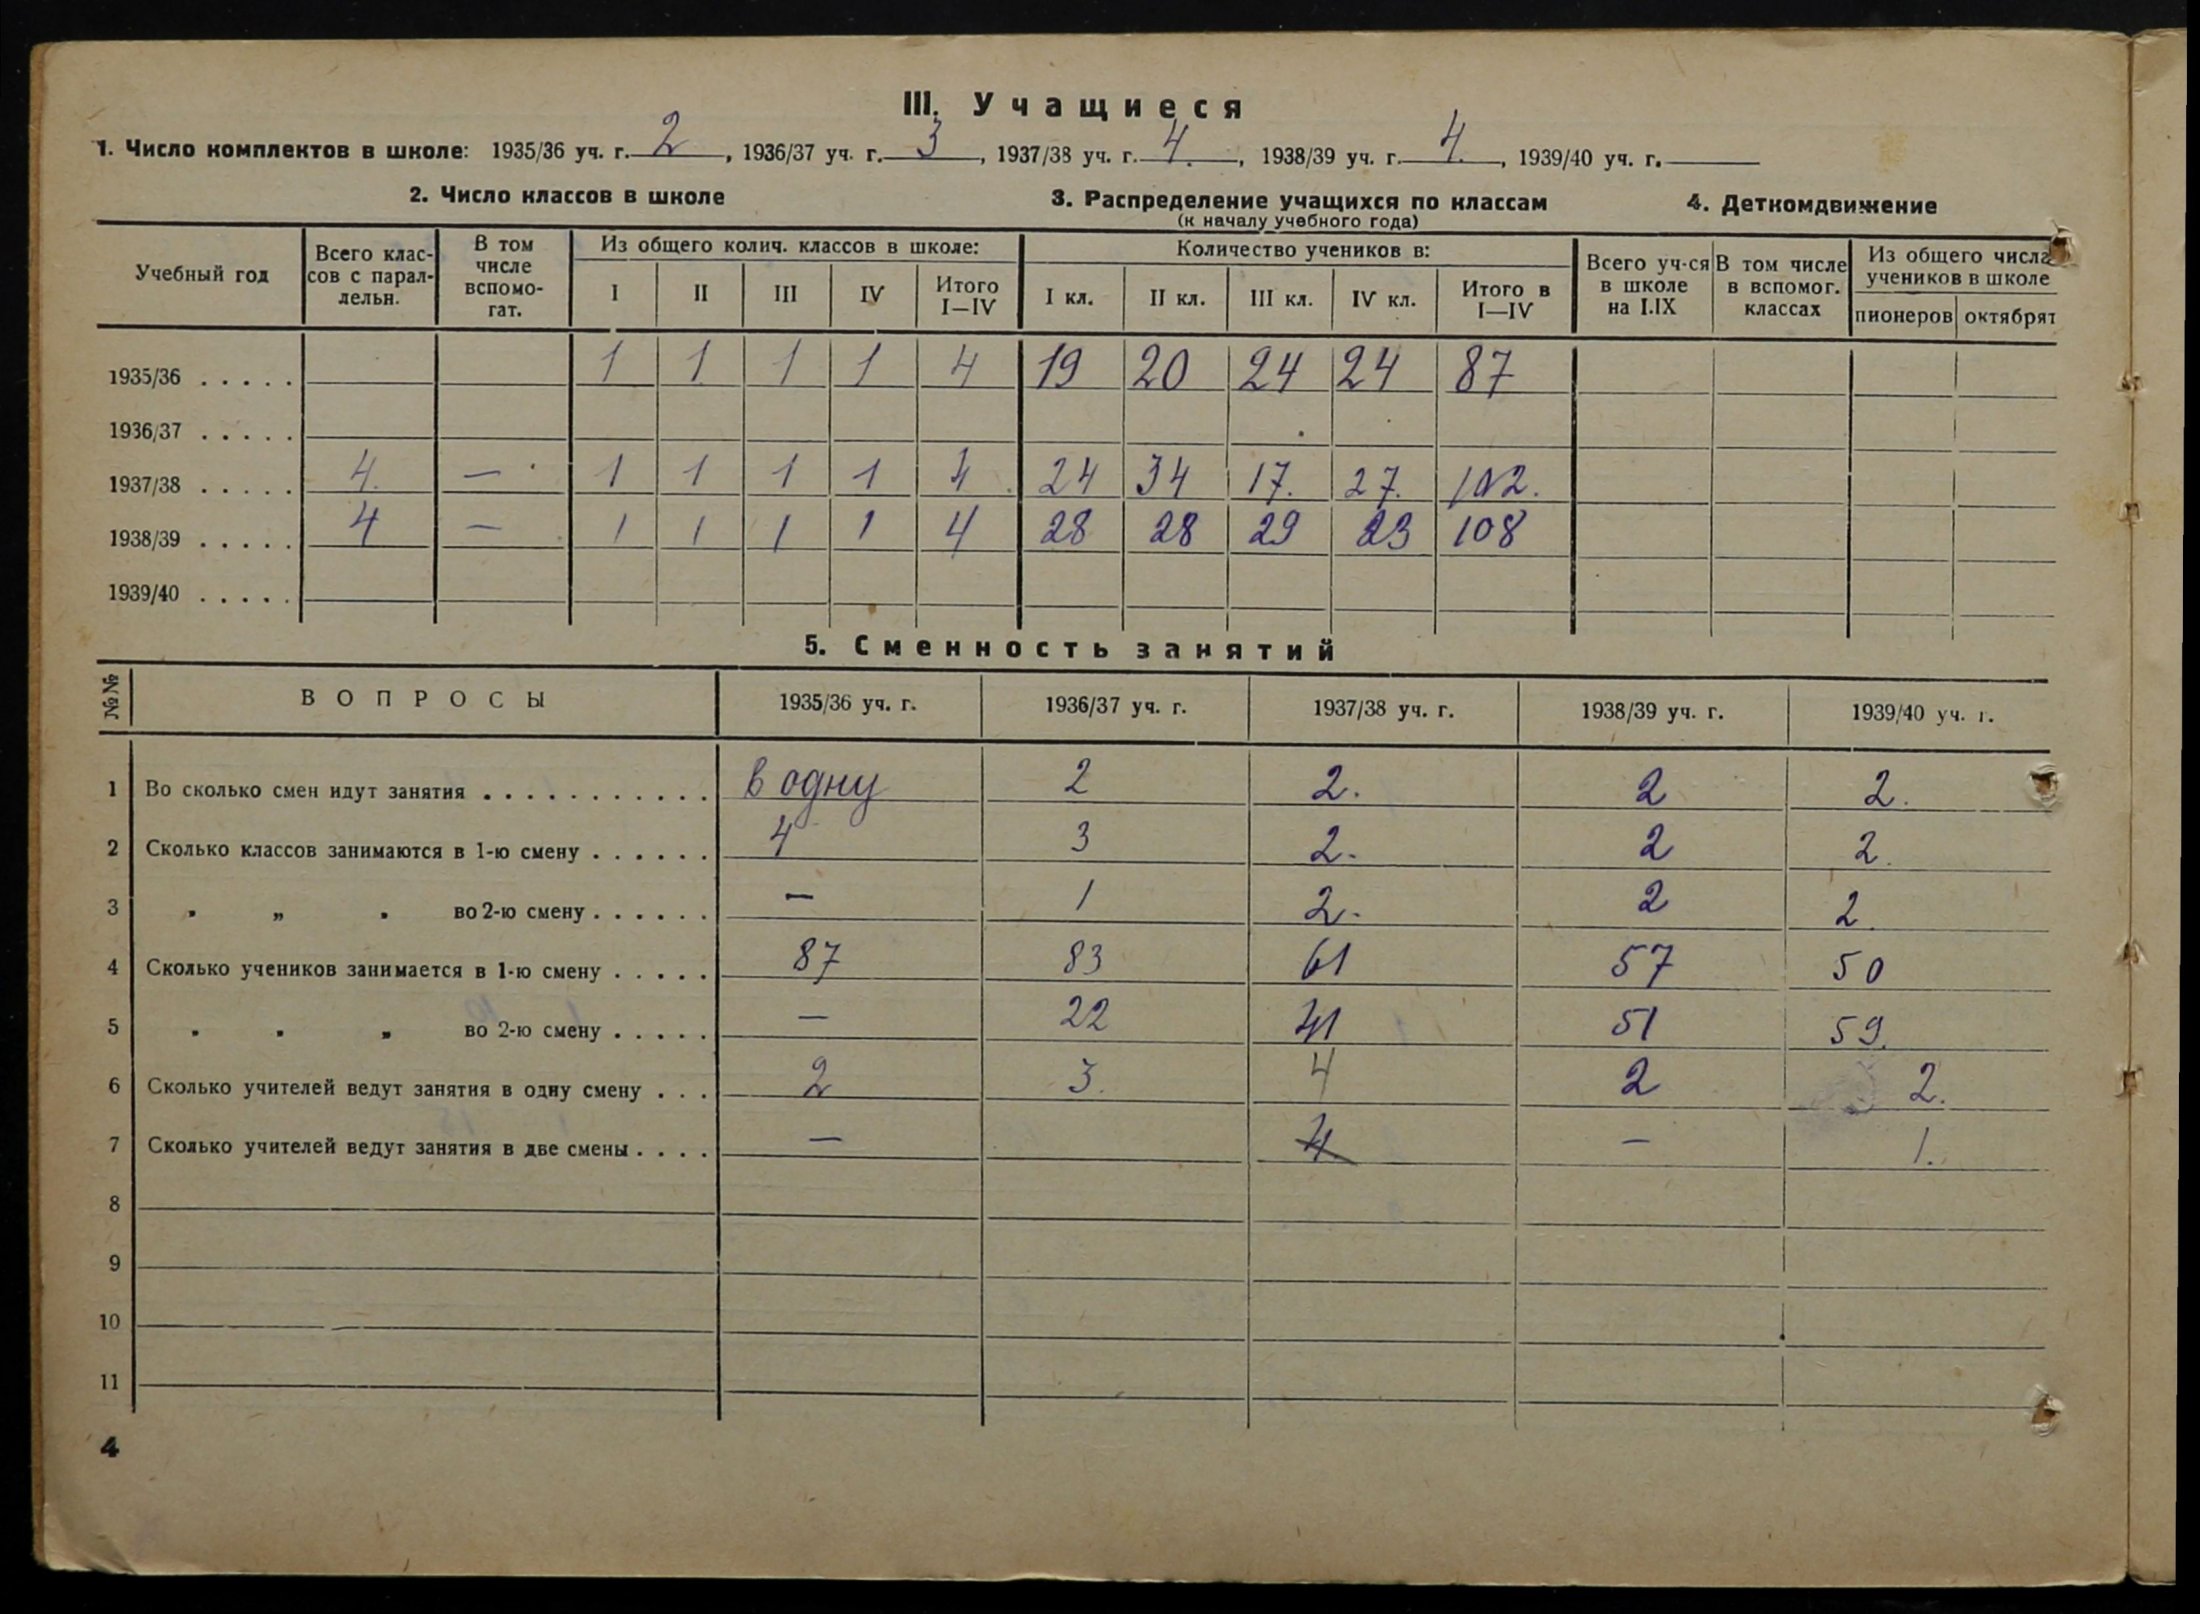 III. Учащиеся
1. Число комплектов в школе: 1935/36 уч. г. 2, 1936/37 уч. г. 3, 1937/38 уч. г. 4., 1938/39 уч. г. 4., 1939/40 уч. г.
2. Число классов в школе 3. Распределение учащихся по классам 4. Деткомдвижение
(к началу учебного года)
Учебный год Всего классов с параллельн. В том числе вспомогат. Из общего колич. классов в школе: Количество учеников в: Всего уч-ся в школе на I.IX В том числе в вспомог. классах Из общего числа учеников в школе
I II III IV Итого I—IV I кл. II кл. III кл. IV кл. Итого в I—IV пионеров октябрят
1935/36 . . . . . 1 1 1 1 4 19 20 24 24 87
1936/37 . . . . .
1937/38 . . . . . 4. — 1 1 1 1 4 24 34 17. 27. 102.
1938/39 . . . . . 4 — 1 1 1 1 4 28 28 29 23 108
1939/40 . . . . .
5. Сменность занятий
№№ ВОПРОСЫ 1935/36 уч. г. 1936/37 уч. г. 1937/38 уч. г. 1938/39 уч. г. 1939/40 уч. г.
1 Во сколько смен идут занятия . . . . . . . . . . . в одну 2 2. 2 2.
2 Сколько классов занимаются в 1-ю смену . . . . . . 4 3 2. 2 2.
3 " „ " во 2-ю смену . . . . . . — 1 2. 2 2.
4 Сколько учеников занимается в 1-ю смену . . . . . 87 83 61 57 50
5 " " „ во 2-ю смену . . . . . — 22 41 51 59.
6 Сколько учителей ведут занятия в одну смену . . . 2 3. 4 2 2.
7 Сколько учителей ведут занятия в две смены . . . . — 4 — 1.
8
9
10
11
4